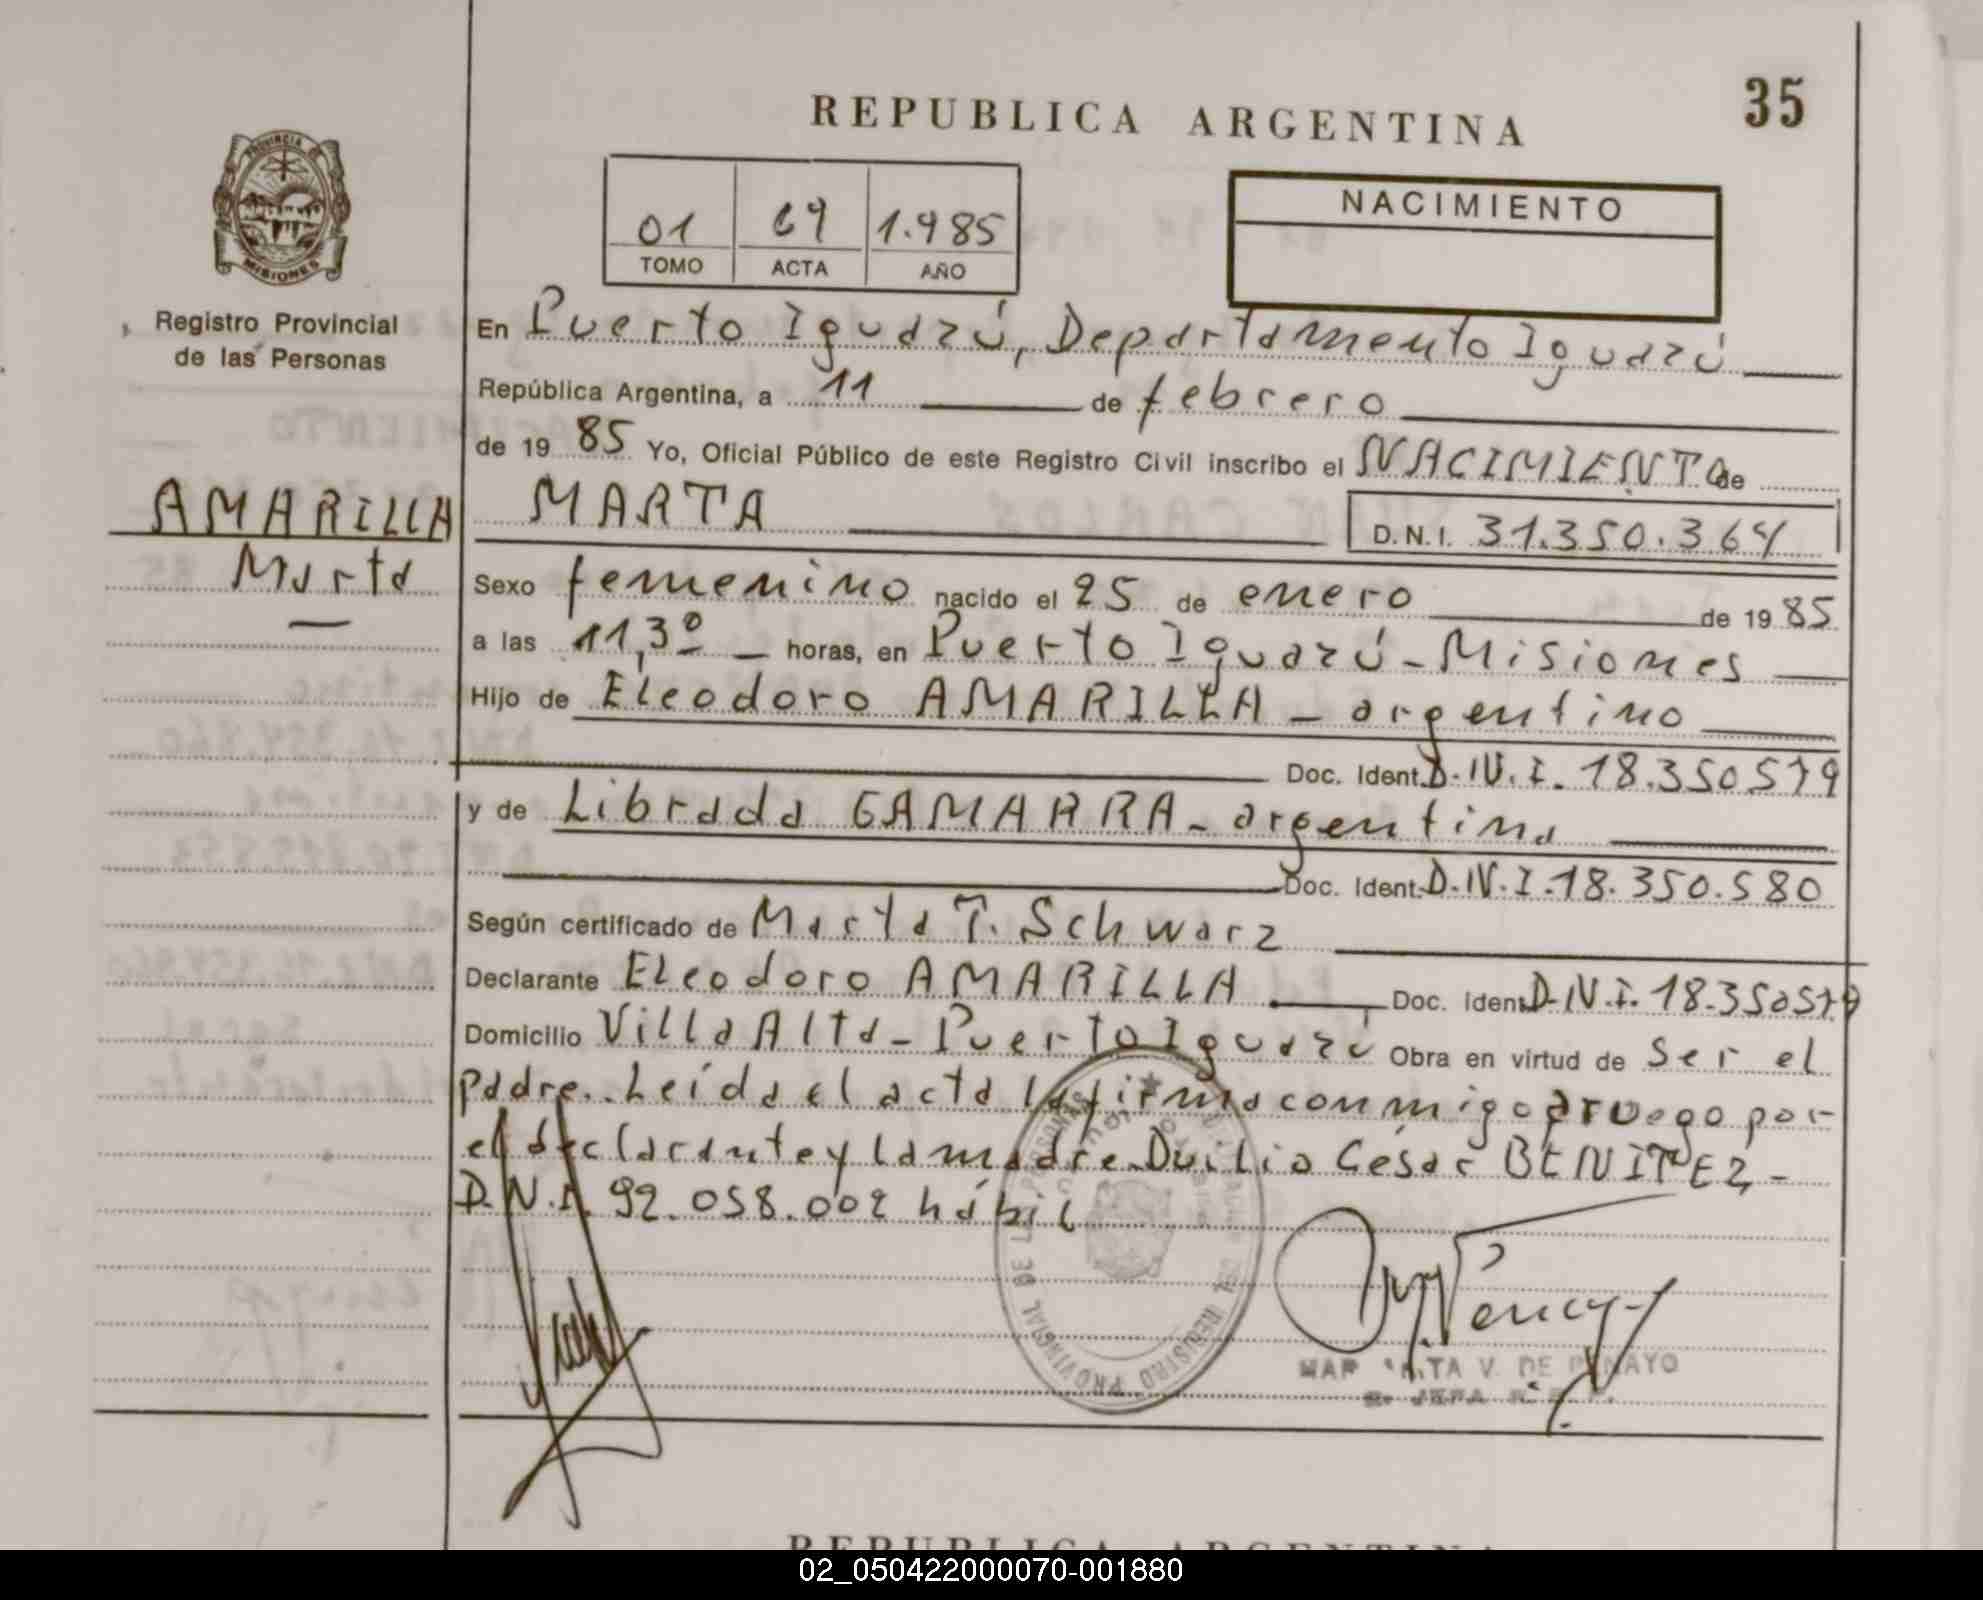 35
REPUBLICA ARGENTINA
PROVINCIA DE
MISIONES
Registro Provincial
de las Personas
01 69 1.985
TOMO ACTA AÑO
NACIMIENTO
En Puerto Iguazú, Departamento Iguazú
República Argentina, a 11 de febrero
de 19 85 Yo, Oficial Público de este Registro Civil inscribo el NACIMIENTO de
AMARILLA
Marta
MARTA D.N.I. 31.350.364
Sexo femenino nacido el 25 de enero de 19 85
a las 11,30 horas, en Puerto Iguazú - Misiones
Hijo de Eleodoro AMARILLA - argentino
Doc. Ident. D.N.I. 18.350.579
y de Librada GAMARRA - argentina
Doc. Ident. D.N.I. 18.350.580
Según certificado de Marta T. Schwarz
Declarante Eleodoro AMARILLA Doc. Ident. D.N.I. 18.350579
Domicilio Villa Alta - Puerto Iguazú Obra en virtud de ser el
padre. Leída el acta la firma conmigo a ruego por
el declarante y la madre Duilio César BENITEZ -
D.N.I. 92.058.002 hábil
REGISTRO PROVINCIAL DE LAS PERSONAS
V. DE
REPUBLICA ARGENTINA
02_050422000070-001880